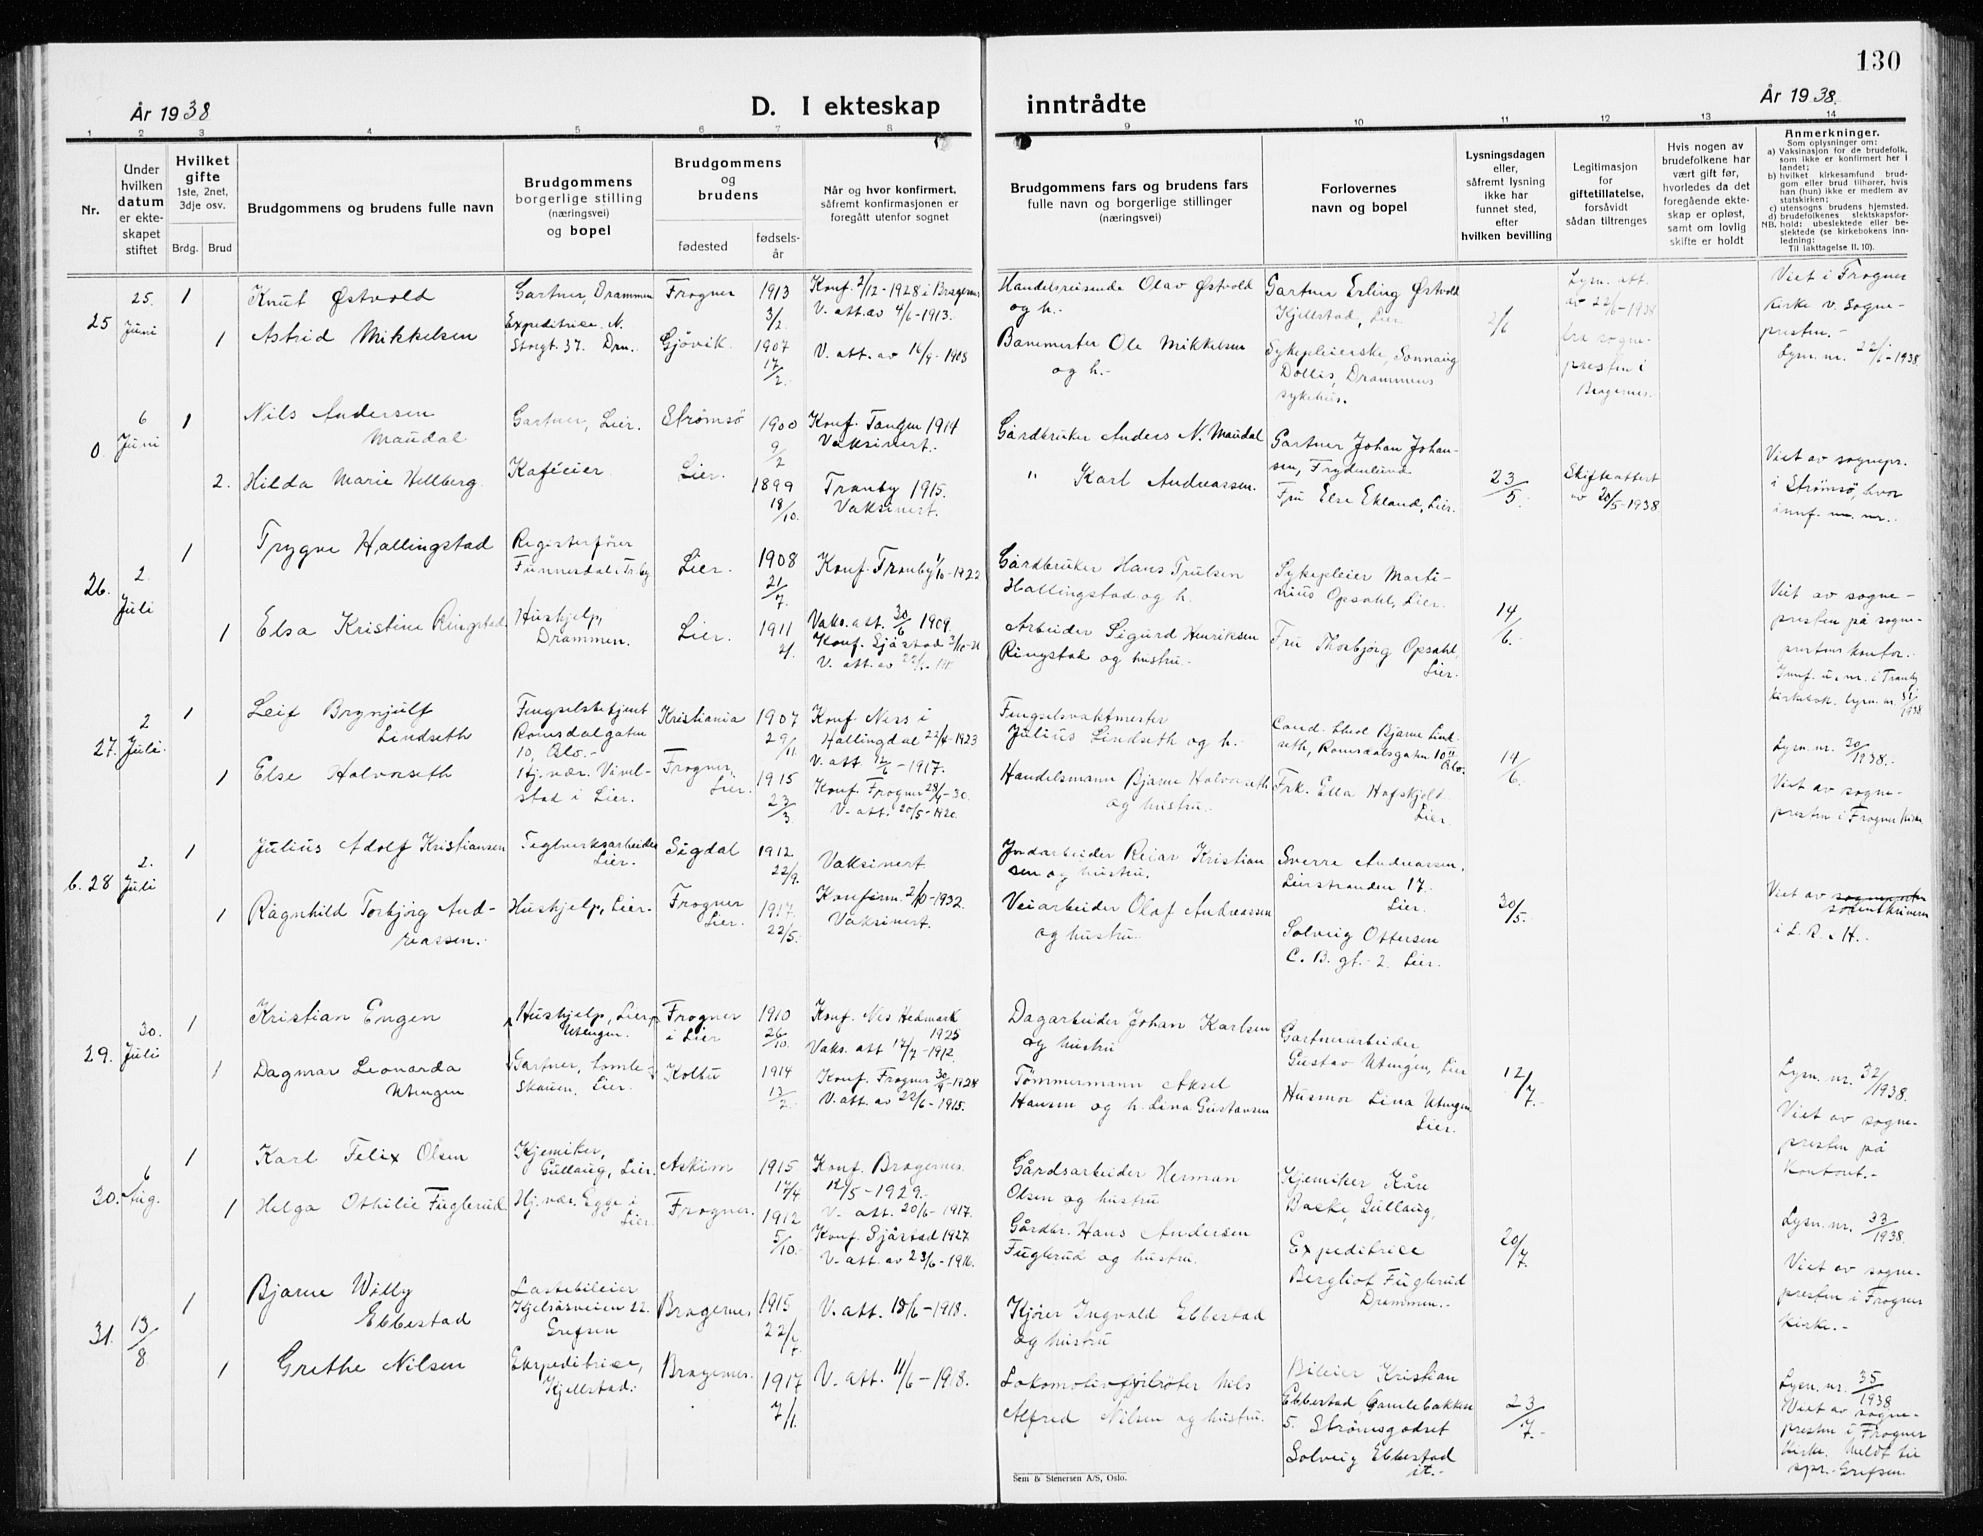 130
År 1938
D. I ekteskap inntrådte
År 1938.
1 2 3 4 5 6 7 8 9 10 11 12 13 14
Nr.
Under hvilken datum er ekteskapet stiftet
Hvilket gifte
1ste, 2net, 3dje osv.
Brdg. Brud
Brudgommens og brudens fulle navn
Brudgommens borgerlige stilling (næringsvei) og bopel
Brudgommens og brudens
fødested
fødselsår
Når og hvor konfirmert, såfremt konfirmasjonen er foregått utenfor sognet
Brudgommens fars og brudens fars fulle navn og borgerlige stillinger (næringsvei)
Forlovernes navn og bopel
Lysningsdagen eller, såfremt lysning ikke har funnet sted, efter hvilken bevilling
Legitimasjon for giftetillatelse, forsåvidt sådan tiltrenges
Hvis nogen av brudefolkene har vært gift før, hvorledes da det foregående ekteskap er opløst, samt om lovlig skifte er holdt
Anmerkninger.
Som oplysninger om:
a) Vaksinasjon for de brudefolk, som ikke er konfirmert her i landet;
b) hvilket kirkesamfund brudgom eller brud tilhører, hvis han (hun) ikke er medlem av statskirken;
c) utensogns brudens hjemsted.
d) brudefolkenes slektskapsforhold: ubeslektede eller beslektede (se kirkebokens innledning:
NB.
Til iakttagelse II. 10).
25
25. Juni
1
Knut Østvold
Gartner, Drammen
Frogner
1913 3/2.
Konf. 2/12-1928 i Bragernes
V. att. av 4/6-1913.
Handelsreisende Olav Østvold
og h.-
Gartner Erling Østvold
Kjellstad, Lier
2/6
Lysn. att.
av 22/6-1938
fra sogne-
presten i
Bragernes.
Viet i Frogner
kirke v. sogne-
presten.-
Lysn. nr. 22/-1938.
1
Astrid Mikkelsen
Expeditrise. N.
Storgt. 37. Drn.
Gjøvik.
1907 17/2.
V. att. av 16/9-1908
Banemester Ole Mikkelsen
og h.-
Sykepleierske, Sonnaug
Døllis, Drammens
sykehus.
0
6 Juni
1
Nils Andersen
Maudal
Gartner, Lier.
Strømsø
1900 9/2
Konf. Tangen 1914
Vaksinert.
Gårdbruker Anders N. Maudal
Gartner Johan Johan-
sen, Frydenlund
23/5.
Skifteattest
av 20/5-1938
Viet av sognepr.
i Strømsø, hvor
innf. m. nr.
2.
Hilda Marie Hellberg
Kaféeier
Lier.
1899 18/10.
Tranby 1915.
Vaksinert.
" Karl Andreassen.
Fru Else Ekland, Lier.
26.
2. Juli
1
Trygve Hallingstad
Registerfører
Lier.
1908 21/7.
Konf. Tranby 1/10-1922
Gårdbruker Hans Trulsen
Hallingstad og h.
Sykepleier Marti-
nius Opsahl, Lier.
14/6.
Viet av sogne-
presten på sogne-
prestens kontor.
Innf. u. nr. i Tranby
kirkebok. Lysn. nr. 31/1938
1
Elsa Kristine Ringstad
Hushjelp,
Drammen.
Lier.
1911
Vaks. att. 30/6 1909
Konf. Sjåstad
V. att. av
Arbeider Sigurd Henriksen
Ringstad og hustru.
Fru Thorbjørg Opsahl,
Lier.
27.
2 Juli.
1
Leif Brynjulf
Lindseth
Fengselsbetjent
Romsdalsgaten
10, Oslo.-
Kristiania
1907 29/11
Konf. Ness i
Hallingdal 22/4-1923
V. att 12/6-1917.
Fengselsvaktmester
Julius Lindseth og h.-
Cand. Stud Bjarne Lind-
seth, Romsdalsgaten 10
Oslo.
14/6.
Lysn. nr. 30/1938.-
Viet av sogne-
presten i Frogner kirke
1
Else Halvorseth
Hj. vær. Vivel-
stad i Lier.
Frogner,
Lier.
1915 23/3.
Konf. Frogner 28/9-30.
V. att. 20/5-1920.
Handelsmann Bjarne Halvorseth
og hustru.
Frk. Ella Hafskjold
Lier.
6. 28
2. Juli
1
Julius Adolf Kristiansen
Teglverksarbeider
Lier.
Sigdal
1912 22/9.
Vaksinert
Jordarbeider Reiar Kristian
sen og hustru.
Sverre Andreassen,
Lierstranden 17.
Lier.
30/5.
Viet av sognepresten
sorenskriveren
i L. R. H.
1
Ragnhild Torbjørg And-
reassen.
Hushjelp, Lier.
Frogner
Lier.
1917. 22/5.
Konfirm. 2/10-1932.
Vaksinert.
Veiarbeider Olaf Andreassen
og hustru.
Solveig Ottersen
C. B. gt.- 2. Lier.
29.
30. Juli
1
Kristian Engen
Hushjelp, Lier,
Utengen.
Frogner
i Lier
1910 26/10.
Konf. Nes Hedmark
1925
Vaks. att 17/7-1912.
Dagarbeider Johan Karlsen
og hustru
Gartnerarbeider
Gustav Utengen, Lier
12/7.-
Lysn. nr. 32/1938.
Viet av sogne-
presten på
kontoret.-
1
Dagmar Leonarda
Utengen
Gartner,
Lier.
Kolbu
1914 13/2.
Konf. Frogner 30/9-1928
V. att. av 22/6-1915.
Tømmermann Aksel
Hansen og h. Lina Gustavsen
Husmor Lina Utengen
Lier.
30.
6 Aug.
1
Karl Felix Olsen
Kjemiker,
Gullaug, Lier.
Askim
1915 17/4
Konf. Bragernes.
12/5-1929.-
V. att. 20/6-1917.
Gårdsarbeider Herman
Olsen og hustru
Kjemiker Kåre
Baske, Gullaug,
20/7.
Lysn. nr. 33/1938.
Viet av sogne-
presten i Frogner
kirke.-
1
Helga Othilie Fuglerud
Hj. vær. Egge i
Lier.
Frogner.
1912 5/10.
Konf. Sjåstad 1927
V. att. av 23/6-1916.
Gårdbr. Hans Andersen
Fuglerud og hustru.
Expeditrise
Bergliot Fuglerud
Drammen.-
31.
13/8
1
Bjarne Willy
Ebbestad
Lastebileier
Kjelsåsveien 22.
Grefsen
Bragernes
1915 22/7
V. att. 18/6-1918.
Kjører Ingvald Ebbestad
og hustru
Bileier Kristian
Ebbestad, Gamlebakken
5. Strømsgodset
23/7.-
Lysn. nr. 35/1938
Viet av sogne-
presten i Frogner
kirke. Meldt til
spr. Grefsen.
1
Grethe Nilsen
Ekspeditrise,
Kjellstad.
Bragernes.
1917 7/1.
V. att. 11/6-1918.
Lokomotivfyrbøter Nils
Alfred Nilsen og hustru.
Solveig Ebbestad
it.-
Sem & Stenersen A/S, Oslo.